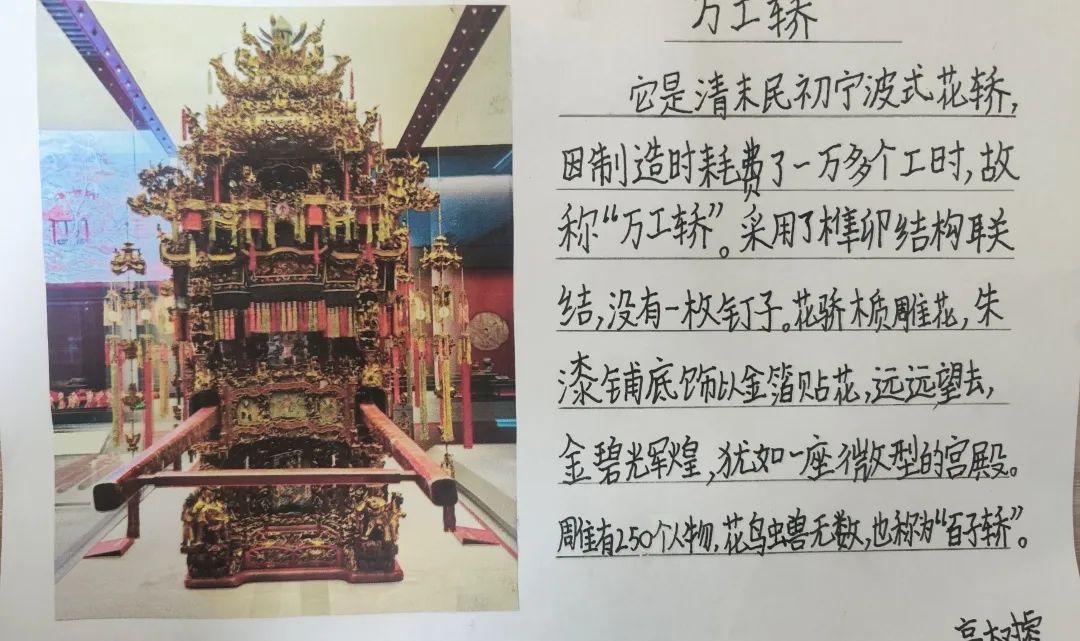 万工轿
它是清末民初宁波式花轿,
因制造时耗费了一万多个工时,故
称“万工轿”。采用了榫卯结构联
结,没有一枚钉子。花骄木质雕花,朱
漆铺底饰以金箔贴花,远远望去,
金碧光辉煌,犹如一座微型的宫殿。
雕有250个人物,花鸟虫兽无数,也称为“百子轿”。